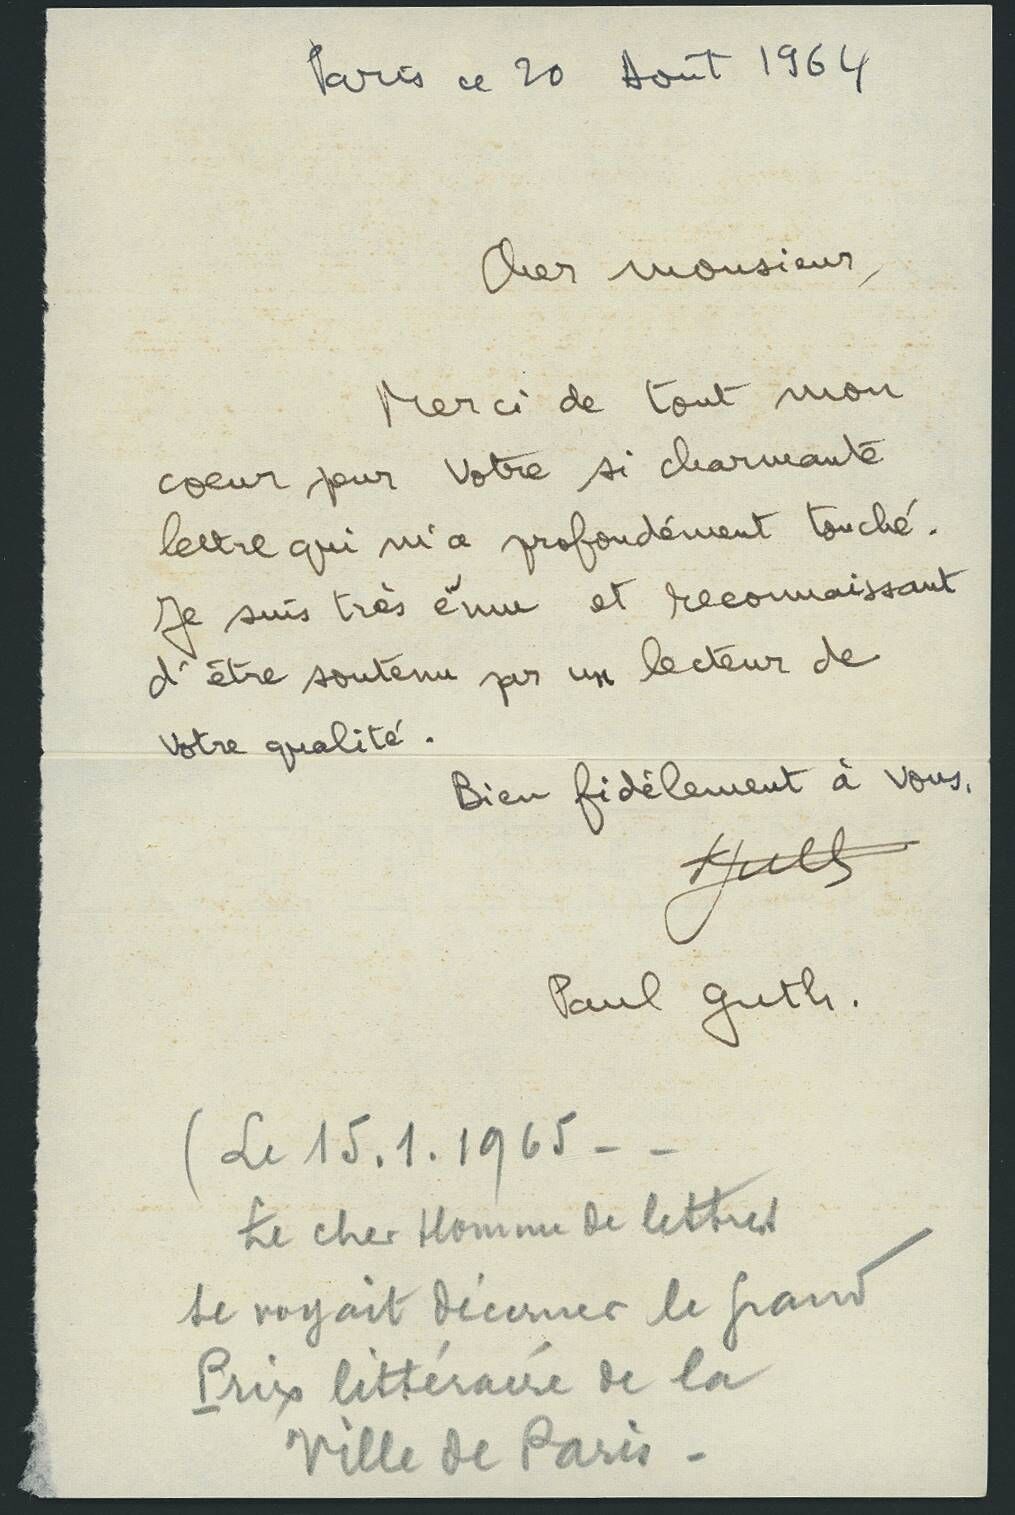 Paris ce 20 Août 1964
Cher monsieur,
Merci de tout mon
coeur pour votre si charmante
lettre qui m'a profondément touché.
Je suis très ému et reconnaissant
d'être soutenu par un lecteur de
votre qualité.
Bien fidèlement à vous.
Guth
Paul Guth.
( Le 15.1.1965 - -
Le cher Homme de lettres
se voyait décerner le grand
Prix littéraire de la
Ville de Paris -